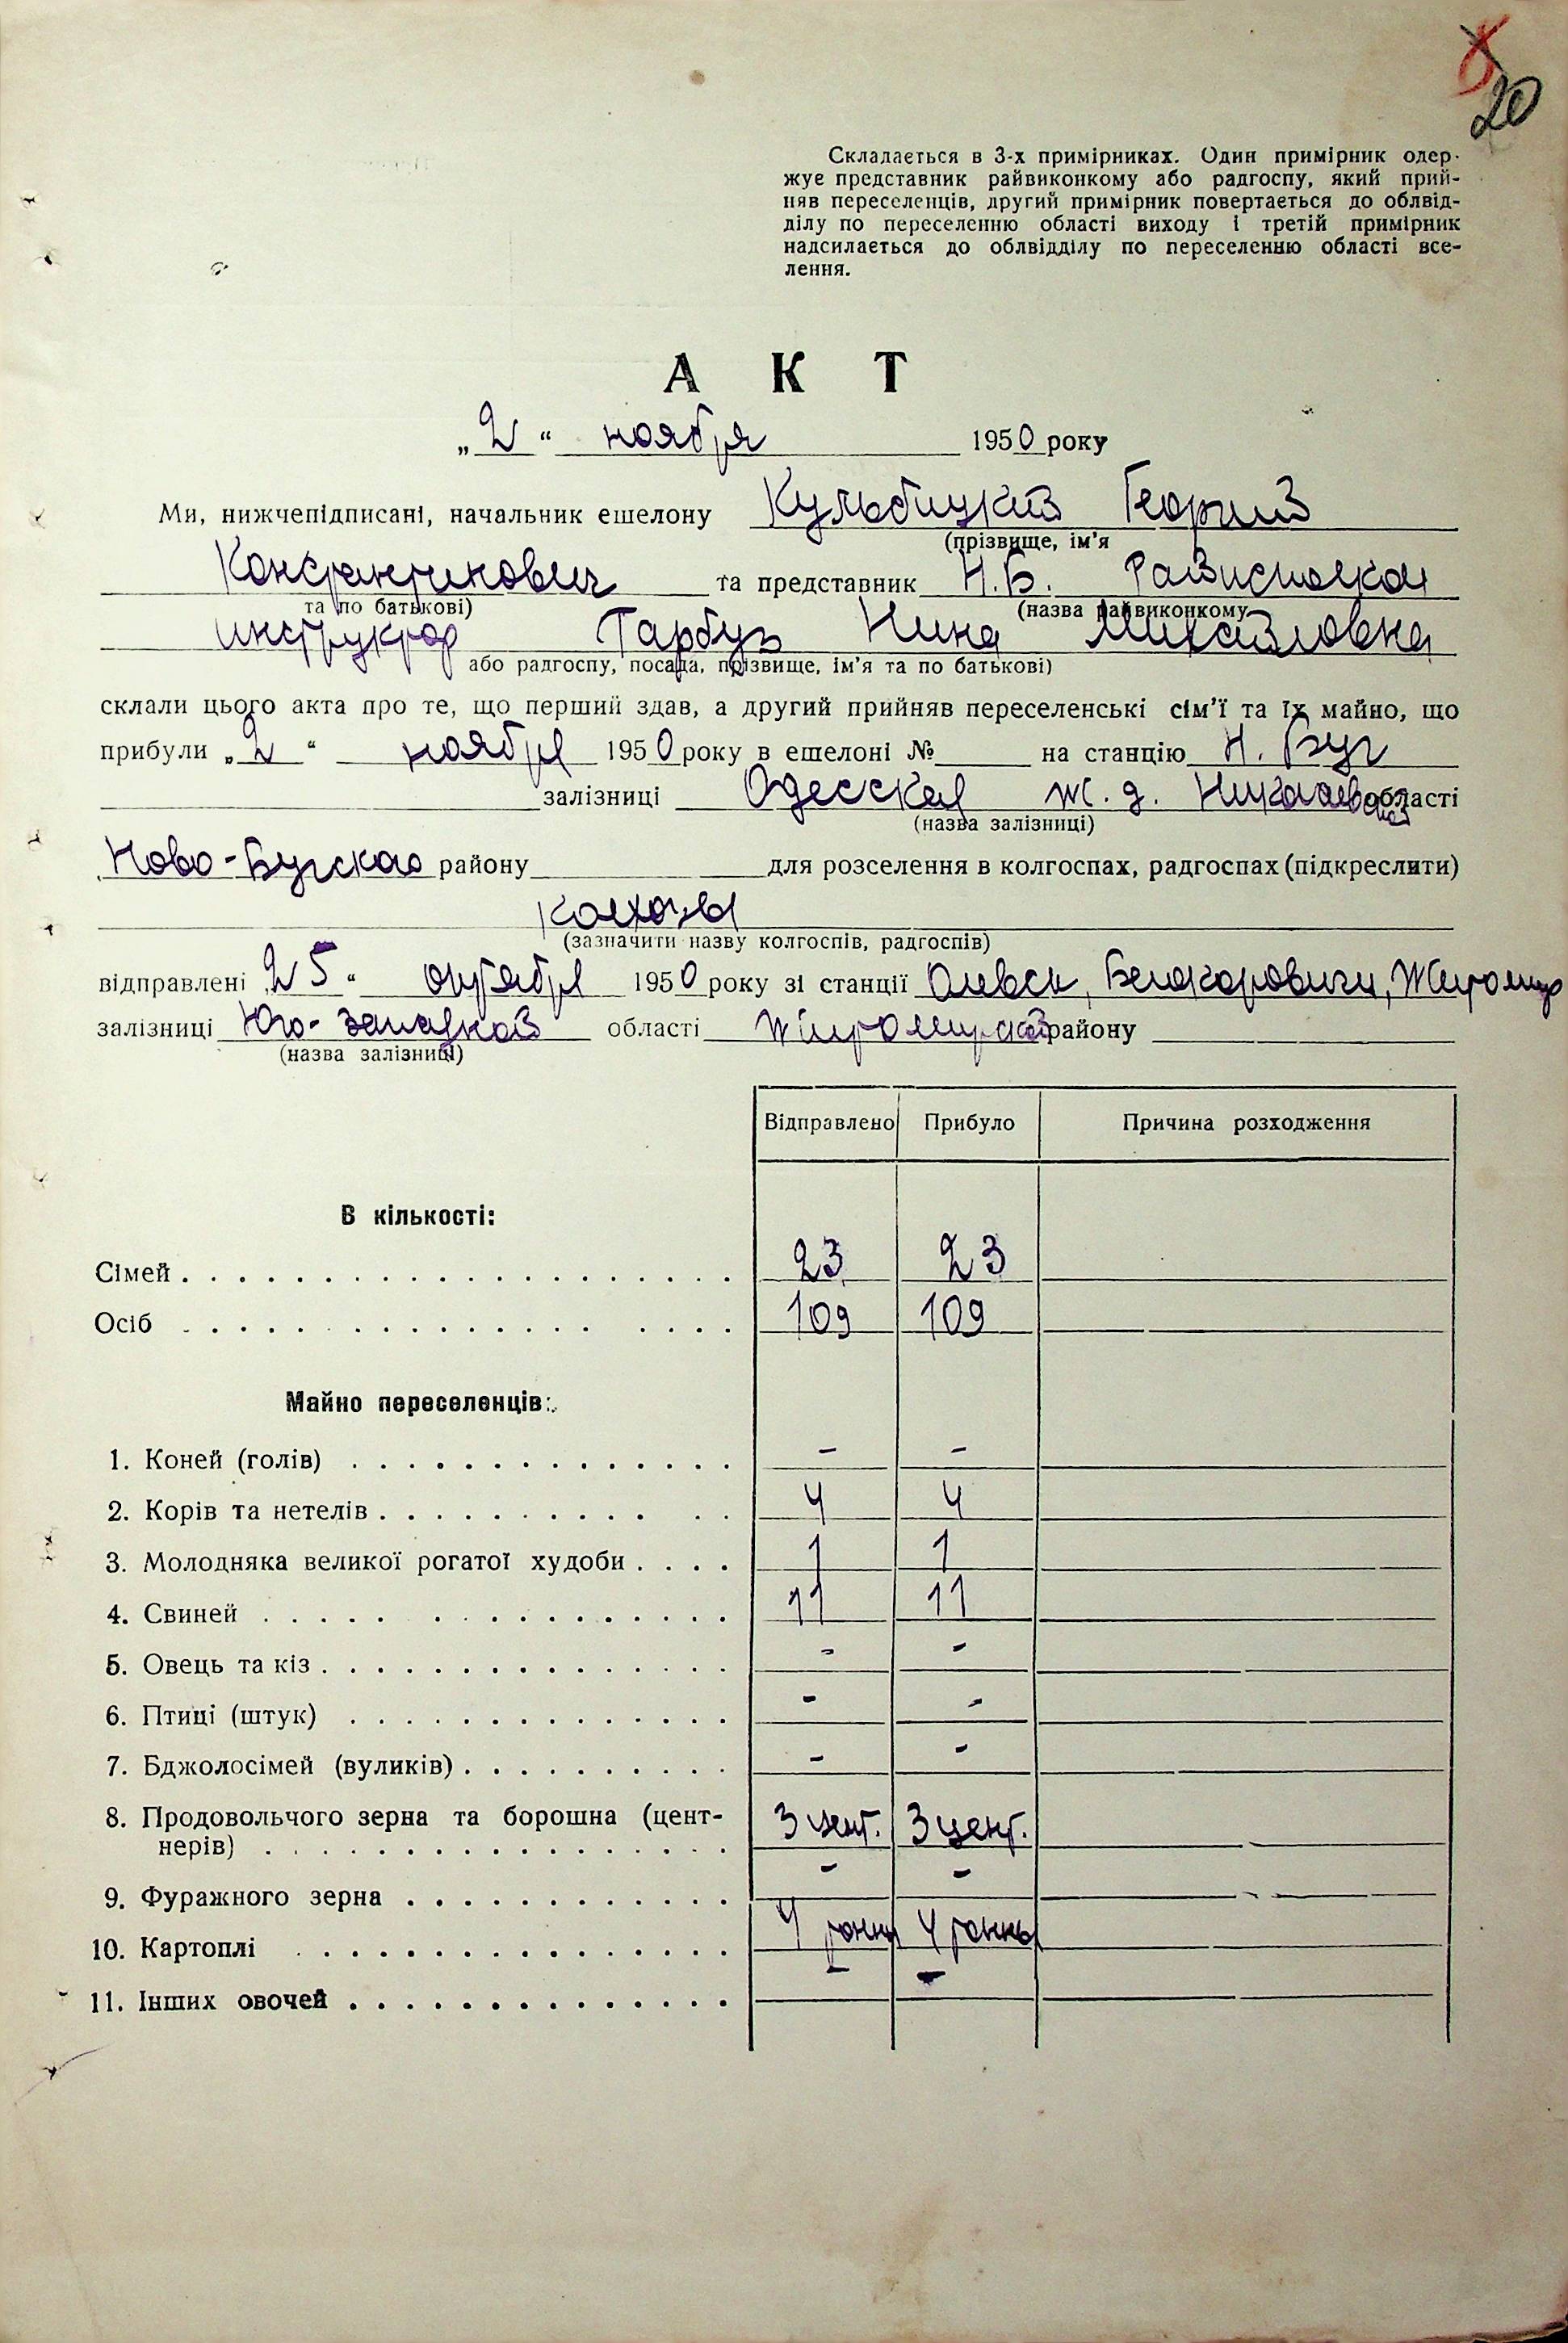 20
Складається в 3-х примірниках. Один примірник одер-
жує представник райвиконкому або радгоспу, який прий-
няв переселенців, другий примірник повертається до облвід-
ділу по переселенню області виходу і третій примірник
надсилається до облвідділу по переселенню області все-
лення.
АКТ
„2“ ноября 1950 року
Ми, нижчепідписані, начальник ешелону Кульбицкий Георгий
(прізвище, ім'я
Константинович та представник Н.Б. Райисполком
та по батькові) (назва райвиконкому
инструктор Гарбуз Нина Михайловна
або радгоспу, посада, прізвище, ім'я та по батькові)
склали цього акта про те, що перший здав, а другий прийняв переселенські сім'ї та їх майно, що
прибули „2“ ноября 1950 року в ешелоні № на станцію Н. Буг
залізниці Одесская ж. д. Николаевской області
(назва залізниці)
Ново-Бугского району для розселення в колгоспах, радгоспах (підкреслити)
колхозы
(зазначити назву колгоспів, радгоспів)
відправлені 25“ октября 1950 року зі станції Олевск, Белокоровичи, Житомир
залізниці Юго-западной області Житомирской району
(назва залізниці)
Відправлено Прибуло Причина розходження
В кількості:
Сімей 23 23
Осіб 109 109
Майно переселенців:
1. Коней (голів) - -
2. Корів та нетелів 4 4
3. Молодняка великої рогатої худоби 1 1
4. Свиней 11 11
5. Овець та кіз - -
6. Птиці (штук) - -
7. Бджолосімей (вуликів) - -
8. Продовольчого зерна та борошна (цент-
нерів) 3 цент. 3 цент.
9. Фуражного зерна - -
10. Картоплі 4 тонны 4 тонны
11. Інших овочей - -